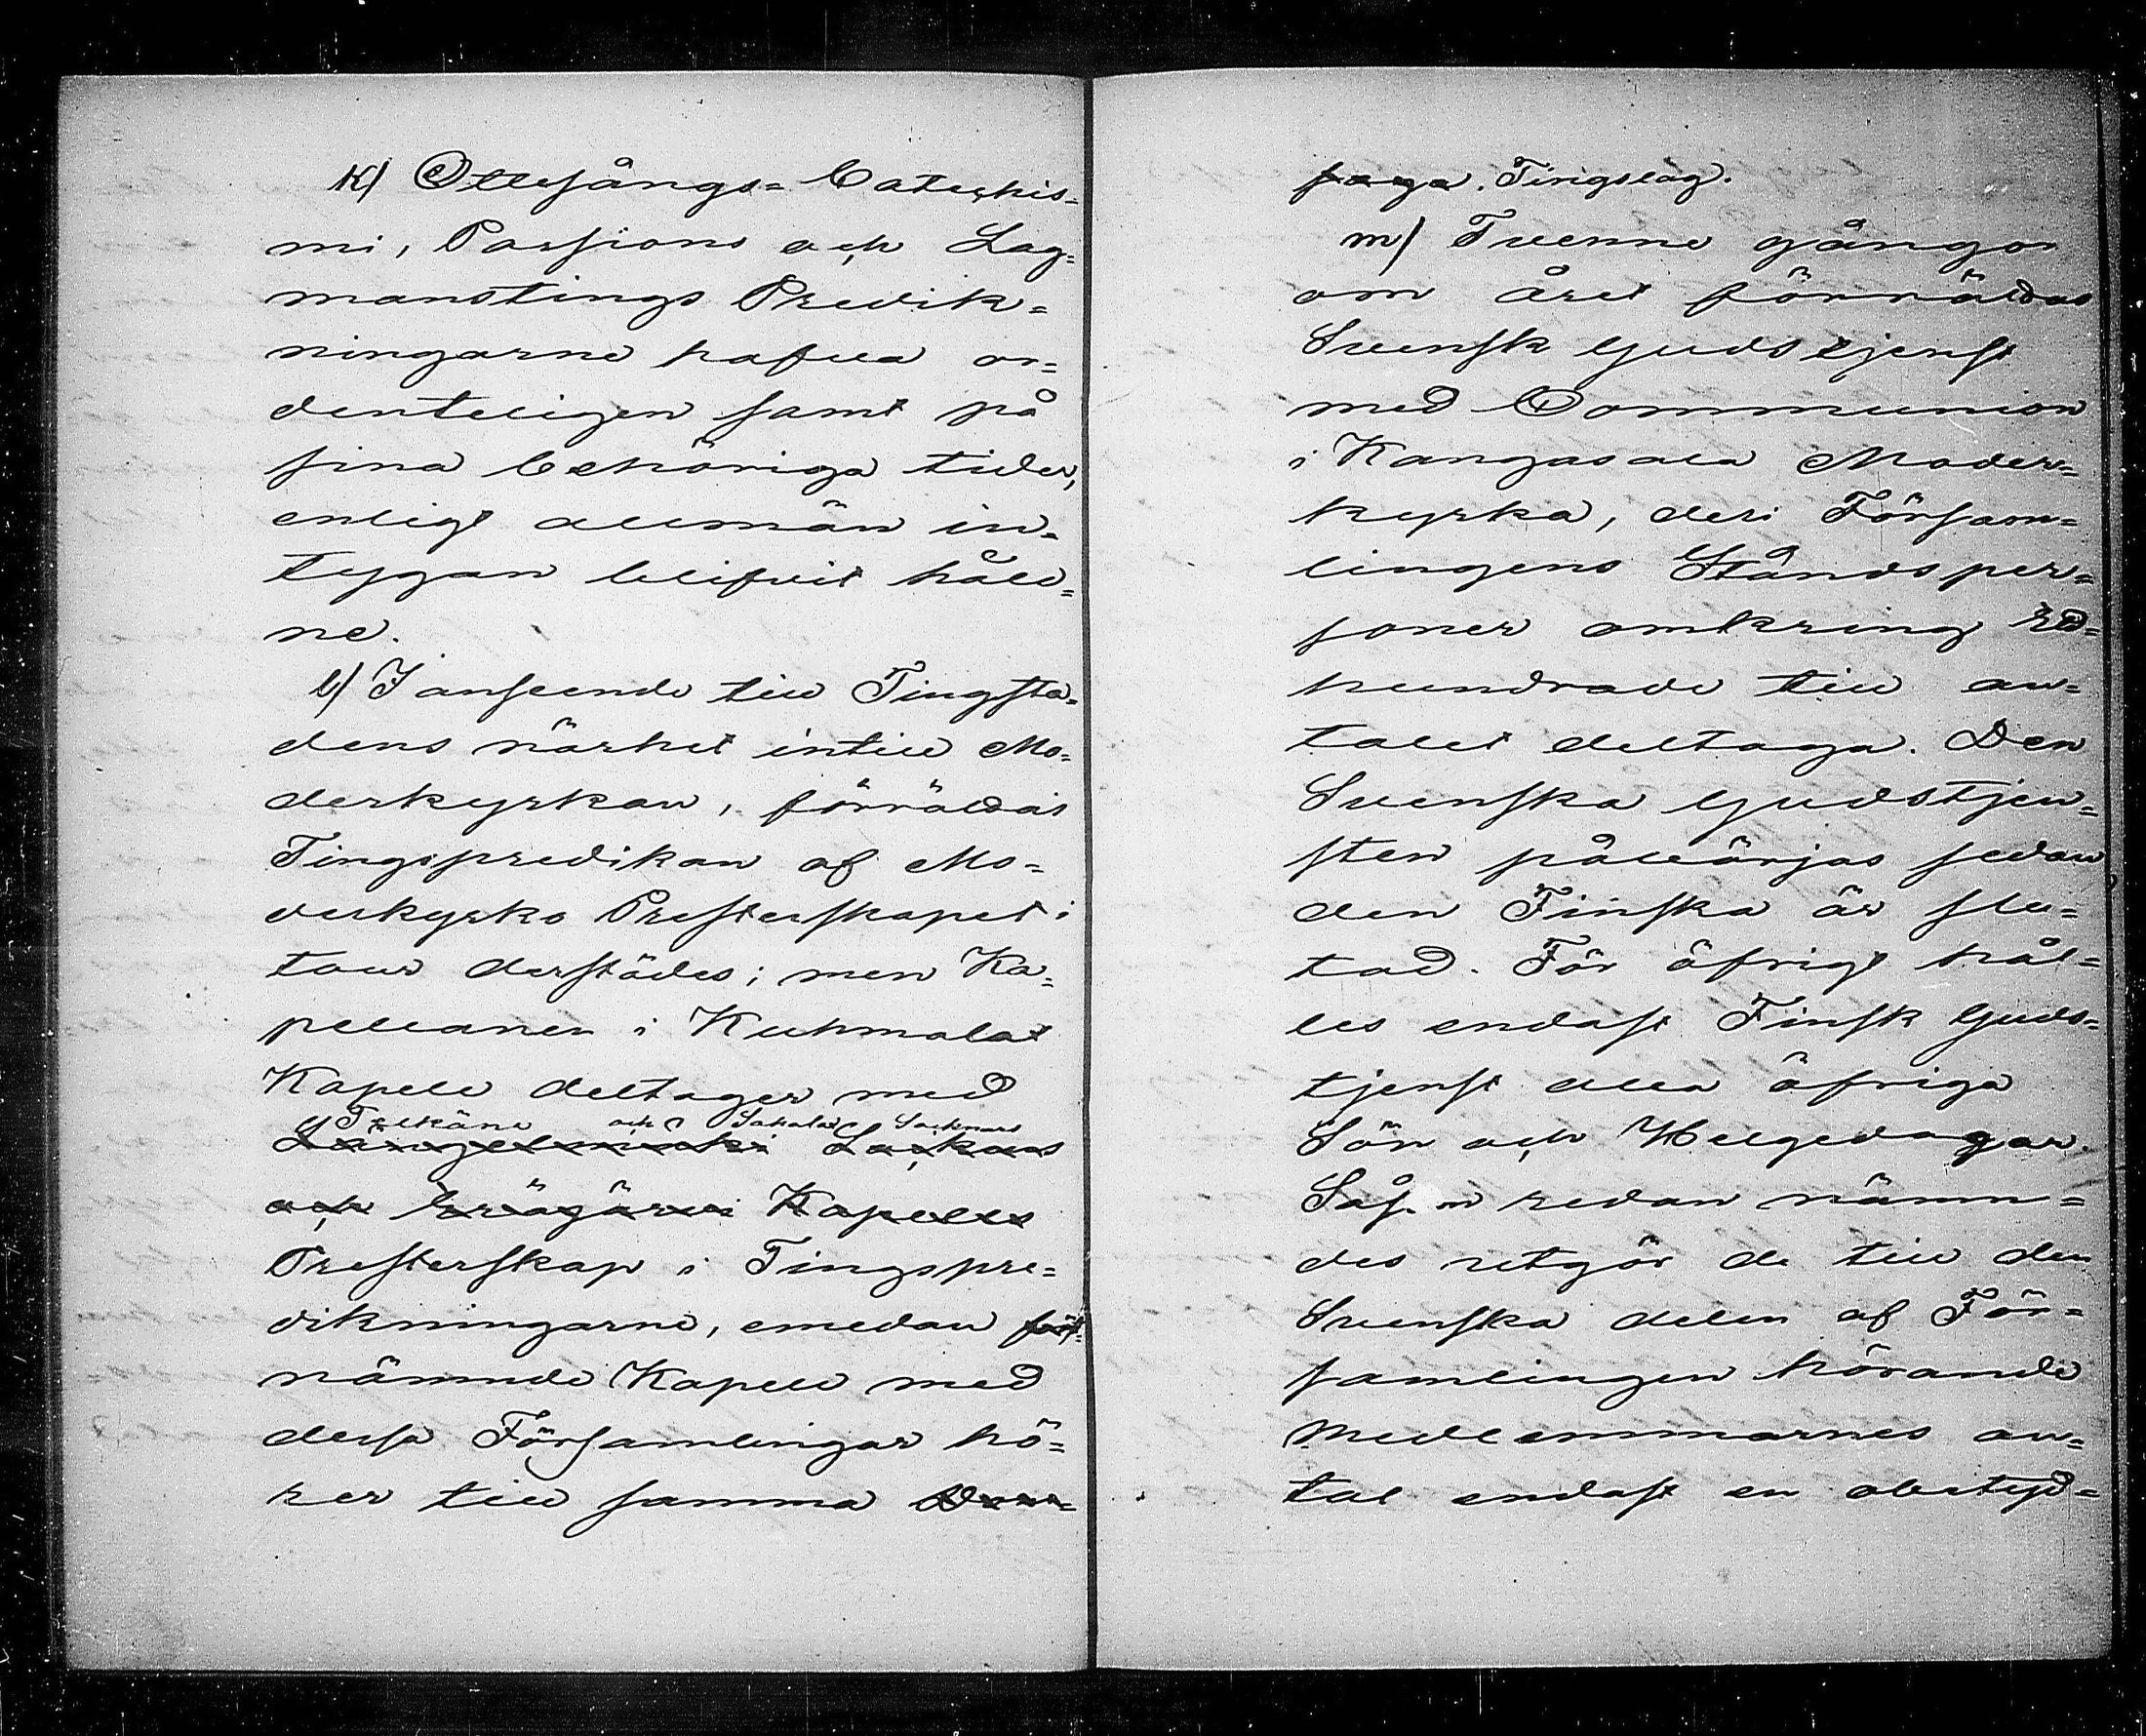 K) Ottesångs= Catechis=
mi, Passions och Lag=
manstings Predik=
ningarne hafva or=
denteligen samt på
sina behöriga tider,
enligt allmän in=
tygan blifvit håll=
ne.
l) I anseende till Tingssta=
dens närhet intill Mo=
derkyrkan, förrättas
Tingspredikan af Mo=
derkyrko Presterskapet i
tour derstädes; men Ka=
pellanen i Kuhmalax
Kapell deltager med
och Sahalax
Längelmäki
och Eräjärvi Kapells
Presterskap i Tingspre=
dikningarne, emedan
nämnde Kapell med
dessa Församlingar hö=
rer till samma Dom=
saga. Tingslag.
m) Tvenne gångor
om året förrättas
Svensk Gudstjenst
med Communion
i Kangasala Moder=
kyrka, deri Försam=
lingens Ståndsper=
soner omkring Ett=
hundrade till an=
talet deltaga. Den
Svenska Gudstjen=
sten påbörjas sedan
den Finska är slu=
tad. För öfrigt hål=
les endast Finsk Guds=
tjenst alla öfriga
Sön och Helgedagar.
Såsom redan nämn=
des utgör de till den
Svenska delen af För=
samlingen hörande
Medlemmarnes an=
tal endast en obetyd=